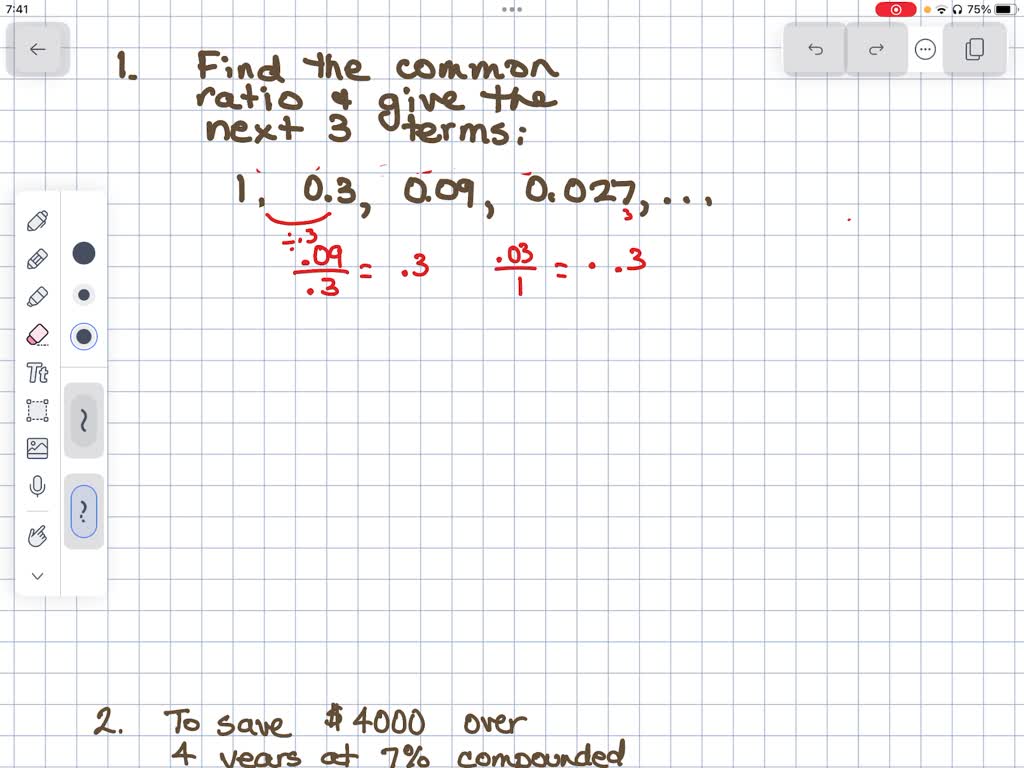 7:41
75%
1. Find the common
ratio & give the
next 3 terms:
1, 0.3, 0.09, 0.027, ...
3
÷.3
.09/.3 = .3 .03/1 = . .3
Tt
2. To save $4000 over
4 years at 7% compounded